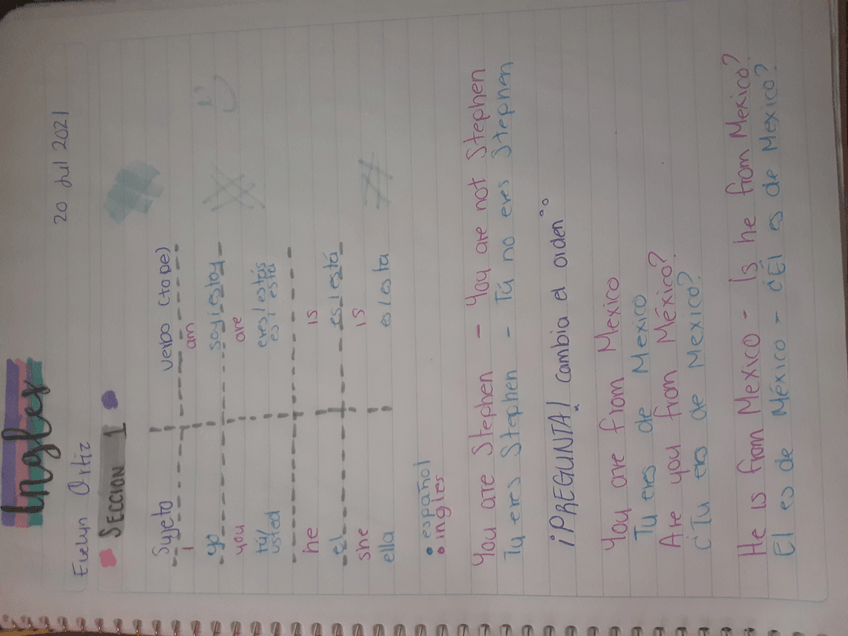 Ingles
20 Jul 2021
Evelyn Ortiz
SECCION 1
Sujeto verbo (to be)
I am
yo soy/estoy
you are
tú/ eres/estás
usted es/está
he is
el es/está
she is
ella es/esta
• español
• ingles
You are Stephen - You are not Stephen
Tu eres Stephen - Tú no eres Stephen
¡PREGUNTA! cambia el orden
You are from Mexico
Tu eres de Mexico
Are you from México?
¿Tu eres de Mexico?
He is from Mexico - Is he from Mexico?
Él es de México - ¿Él es de México?